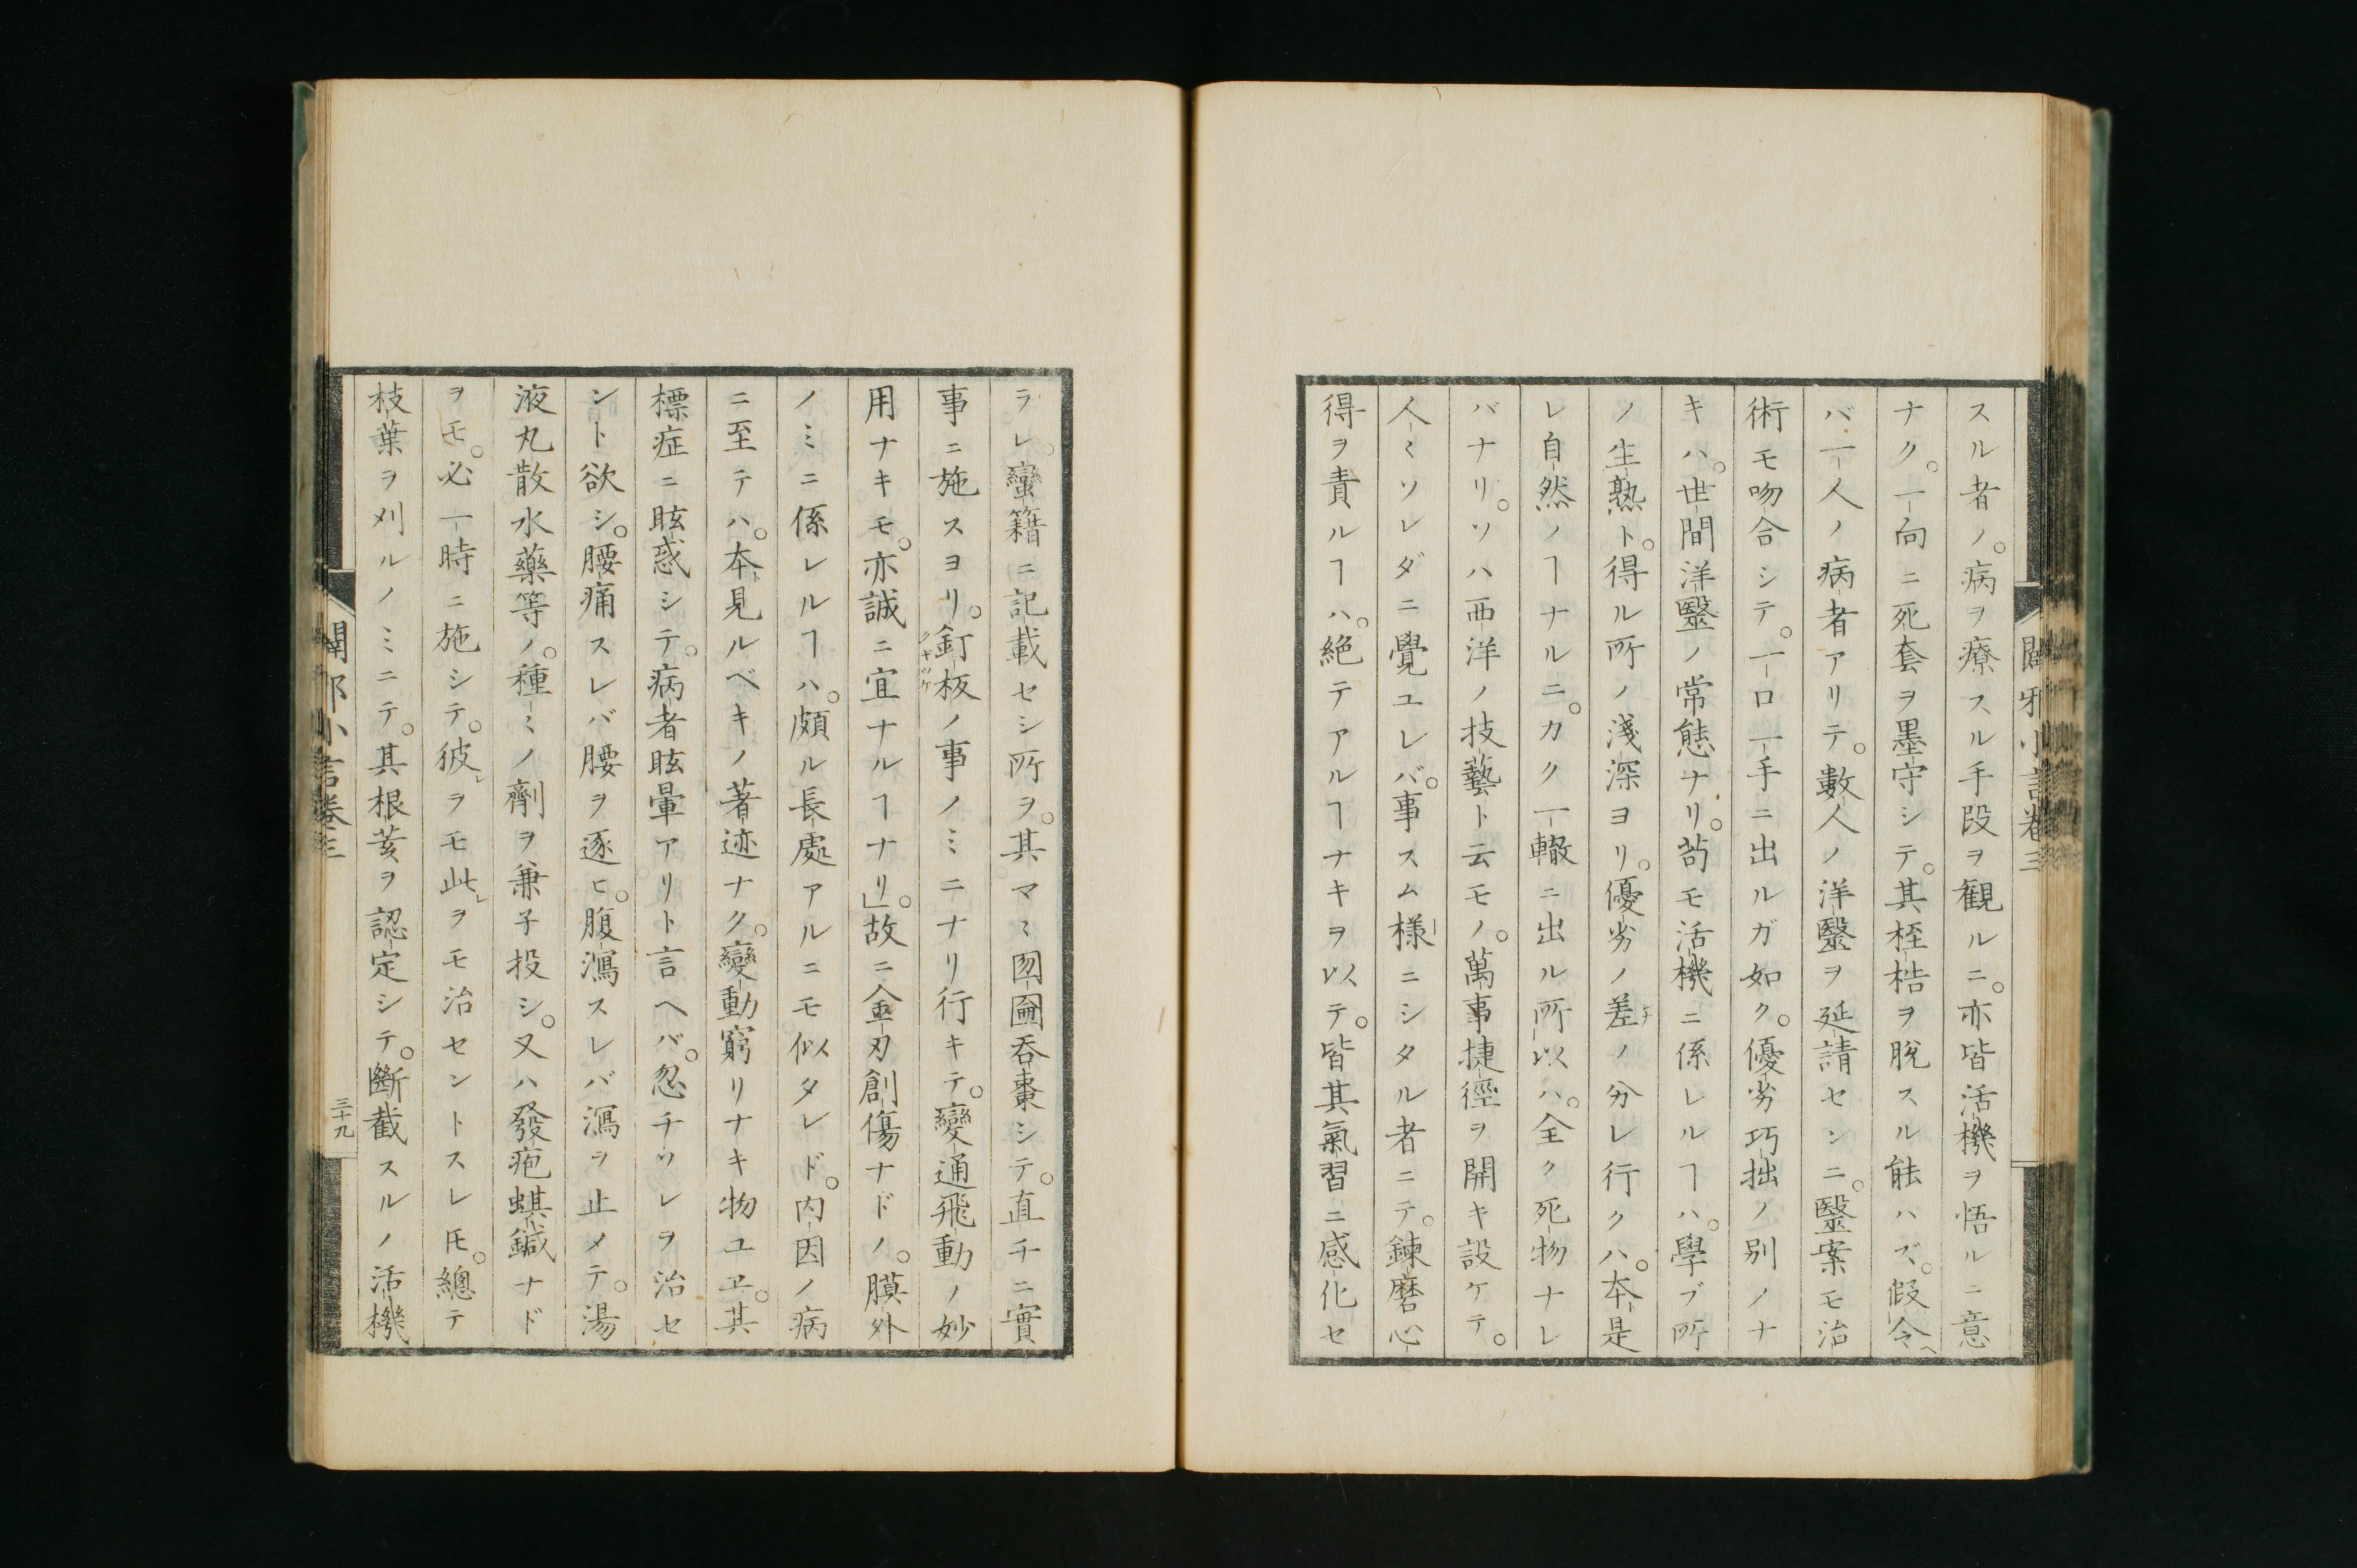 スル者ノ。病ヲ療スル手段ヲ観ルニ。亦皆活機ヲ悟ルニ意
ナク。一向ニ死套ヲ墨守シテ。其桎梏ヲ脫スル能ハズ。假令ヘ
バ一人ノ病者アリテ。數人ノ洋醫ヲ延請センニ。醫案モ治
術モ吻合シテ。一口一手ニ出ルガ如ク。優劣巧拙ノ別ノナ
キハ。世間洋醫ノ常態ナリ。茍モ活機ニ係レルヿハ。學ブ所
ノ生熟ト。得ル所ノ淺深ヨリ。優劣ノ差チノ分レ行クハ。本是
レ自然ノヿナルニ。カク一轍ニ出ル所以ハ。全ク死物ナレ
バナリ。ソハ西洋ノ技藝ト云モノ。萬事捷徑ヲ開キ設ケテ。
人ミソレダニ覺ユレバ。事スム樣ニシタル者ニテ。鍊磨心
得ヲ責ルヿハ。絕テアルヿナキヲ以テ。皆其氣習ニ感化セ
闢邪小言卷三
ラレ。蠻籍ニ記載セシ所ヲ。其マヽ囫圇吞棗シテ。直チニ實
事ニ施スヨリ。釘板ノ事ノミニナリ行キテ。變通飛動ノ妙
クキツケ
用ナキモ。亦誠ニ宜ナルヿナリ」。故ニ金刃創傷ナドノ。膜外
ノミニ係レルヿハ。頗ル長處アルニモ似タレド。内因ノ病
ニ至テハ。本ト見ルベキノ著迹ナク。變動窮リナキ物ユヱ。其
標症ニ眩惑シテ。病者眩暈アリト言ヘバ。忽チソレヲ治セ
ント欲シ。腰痛スレバ腰ヲ逐ヒ。腹瀉スレバ瀉ヲ止メテ。湯
液丸散水藥等ノ。種ミノ劑ヲ兼子投シ。又ハ發疱蜞鍼ナド
ヲモ。必一時ニ施シテ。彼レヲモ此レヲモ治セントスレ𪜈。總テ
枝葉ヲ刈ルノミニテ。其根荄ヲ認定シテ。斷截スルノ活機
闢邪小言卷三
三十九